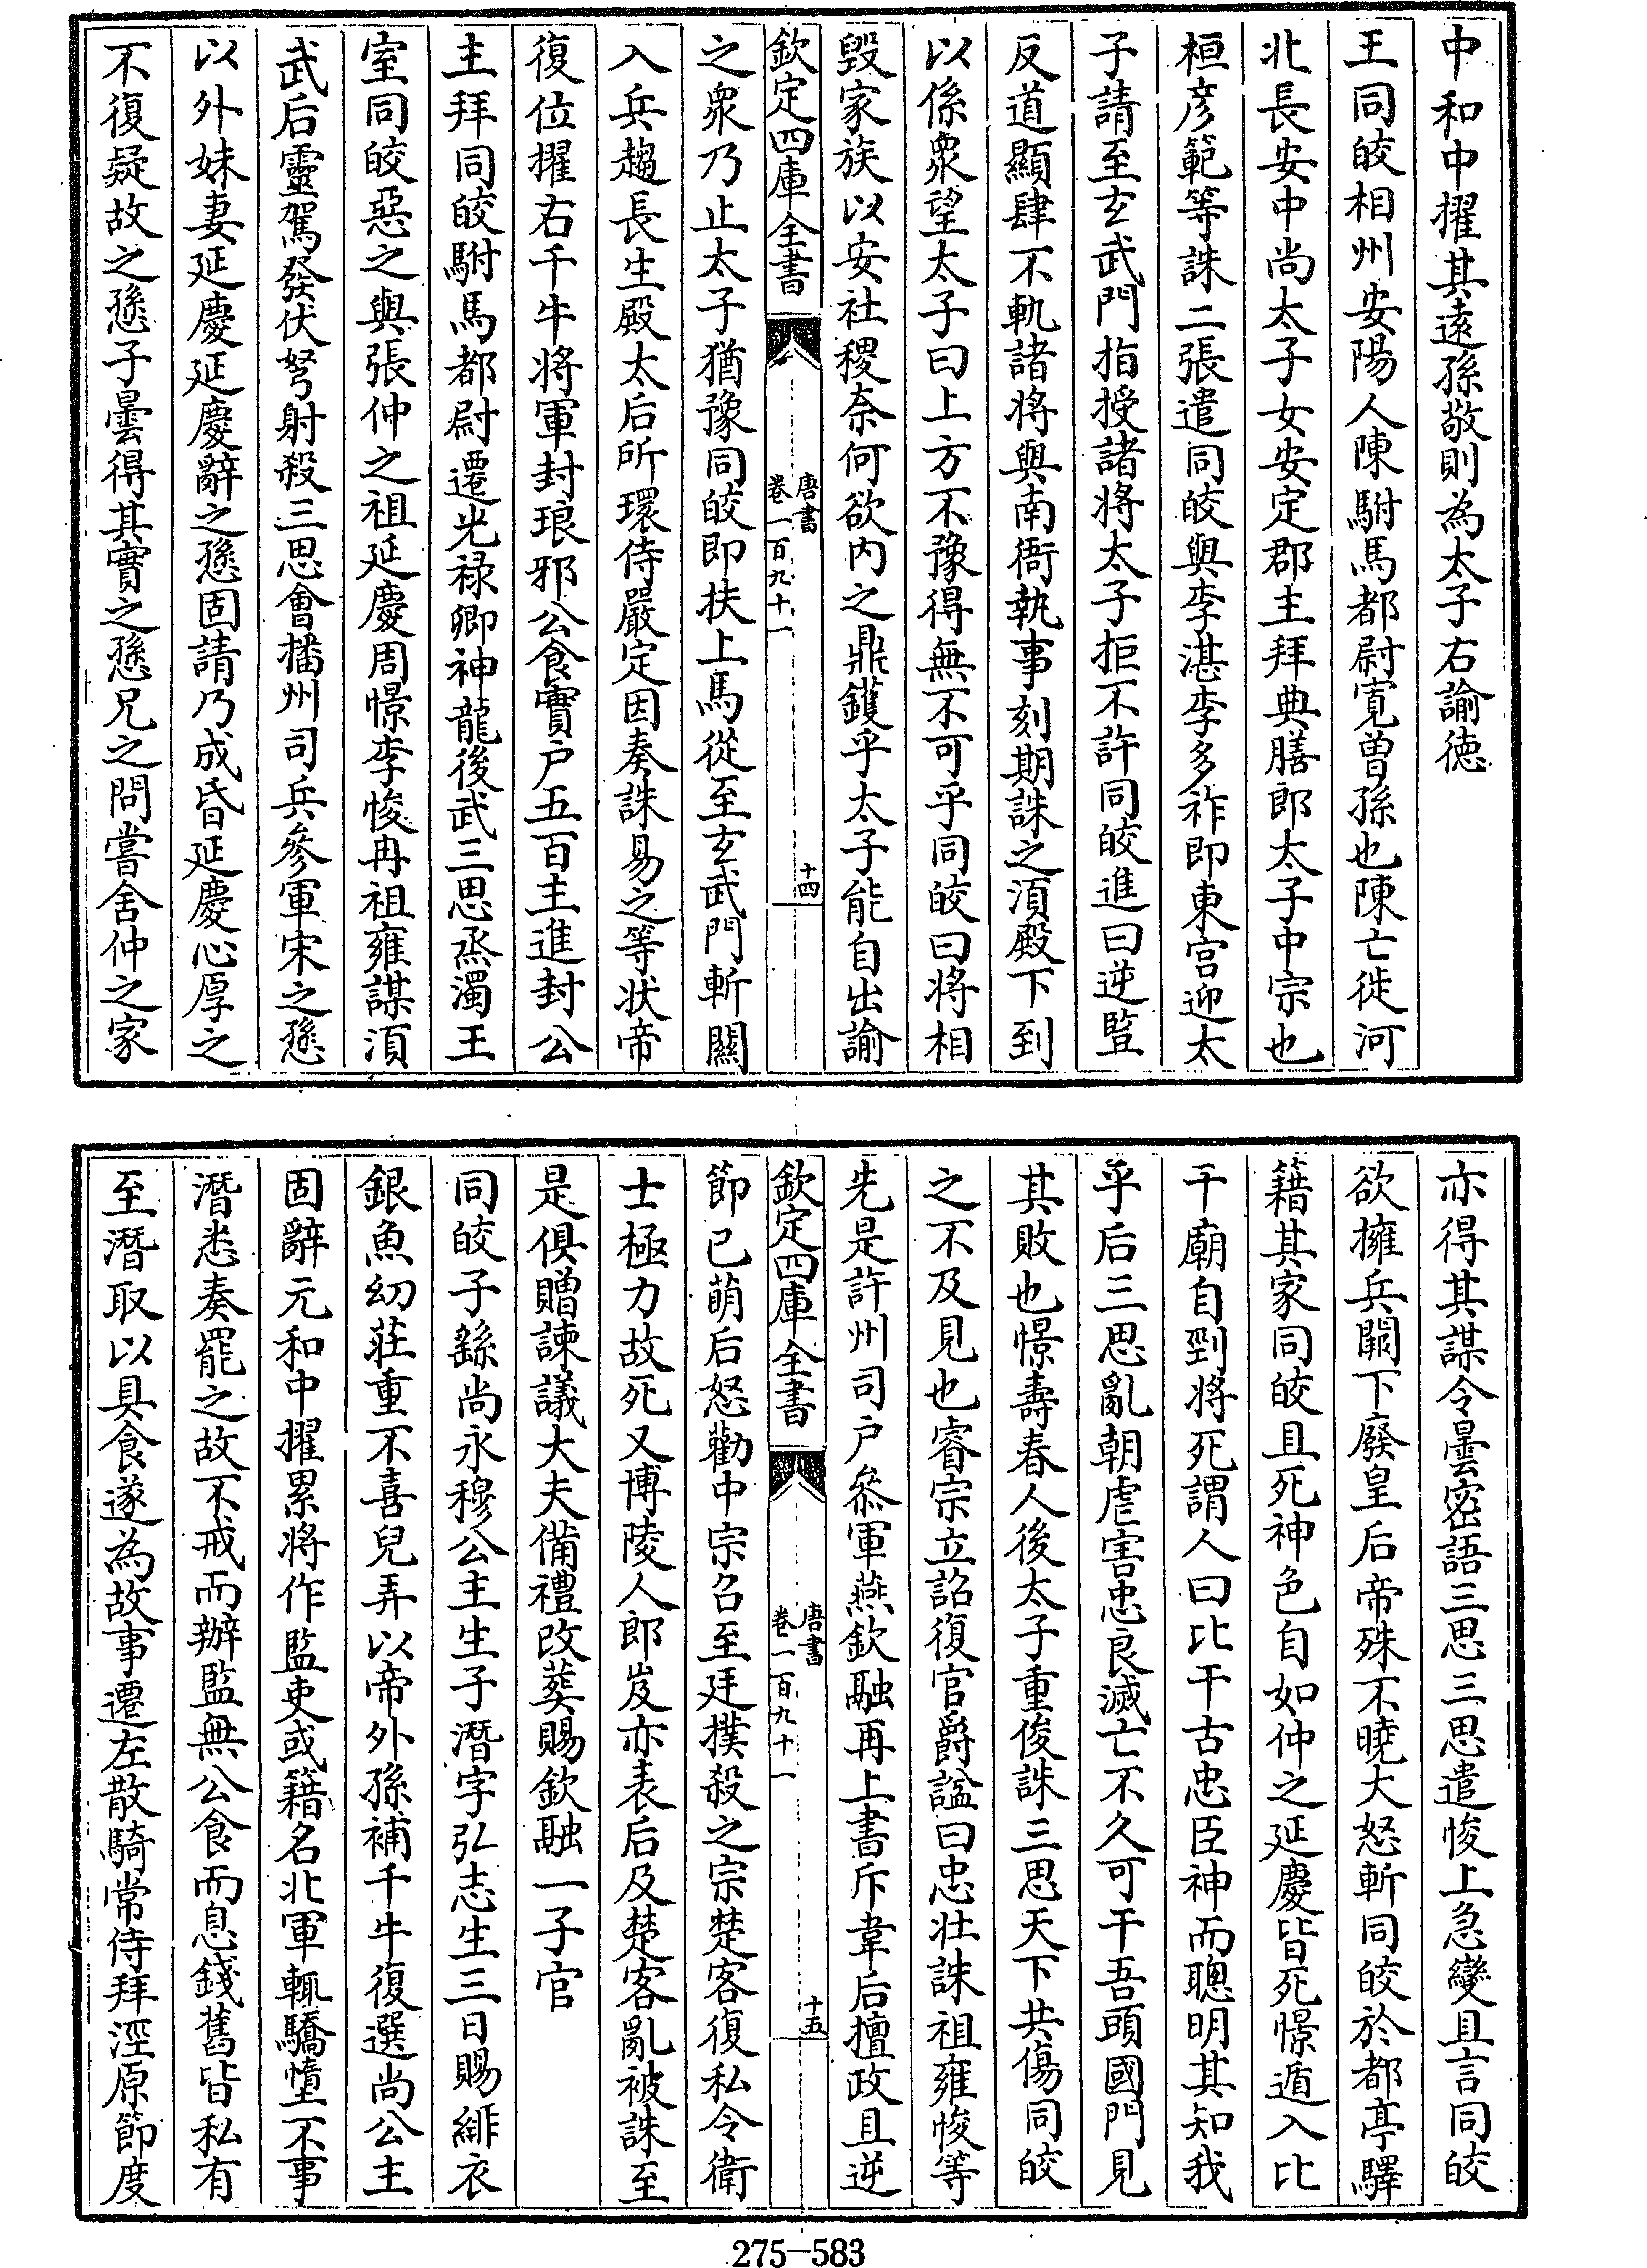 中和中擢其遠孫敬則為太子右諭徳
王同皎相州安陽人陳駙馬都尉寛曽孫也陳亡徙河
北長安中尚太子女安定郡主拜典膳郎太子中宗也
桓彦範等誅二張遣同皎與李湛李多祚即東宫迎太
子請至玄武門指授諸将太子拒不許同皎進曰逆豎
反道顯肆不軌諸将與南衙執事刻期誅之湏殿下到
以係衆望太子曰上方不豫得無不可乎同皎曰将相
毁家族以安社稷奈何欲内之鼎鑊乎太子能自出諭
欽定四庫全書
唐書
卷一百九十一
十四
之衆乃止太子猶豫同皎即扶上馬從至玄武門斬關
入兵趨長生殿太后所環侍嚴定因奏誅易之等状帝
復位擢右千牛将軍封琅邪公食實户五百主進封公
主拜同皎駙馬都尉遷光禄卿神龍後武三思烝濁王
室同皎惡之與張仲之祖延慶周憬李悛冉祖雍謀湏
武后靈駕發伏弩射殺三思會播州司兵參軍宋之愻
以外妹妻延慶延慶辭之愻固請乃成昏延慶心厚之
不復疑故之愻子曇得其實之愻兄之問嘗舍仲之家
亦得其謀令曇密語三思三思遣悛上急變且言同皎
欲擁兵闕下廢皇后帝殊不曉大怒斬同皎於都亭驛
籍其家同皎且死神色自如仲之延慶皆死憬遁入比
干廟自剄将死謂人曰比干古忠臣神而聰明其知我
乎后三思亂朝虐害忠良滅亡不久可干吾頭國門見
其敗也憬壽春人後太子重俊誅三思天下共傷同皎
之不及見也睿宗立詔復官爵諡曰忠壮誅祖雍悛等
先是許州司户叅軍燕欽融再上書斥韋后擅政且逆
欽定四庫全書
唐書
卷一百九十一
十五
節已萌后怒勸中宗召至廷撲殺之宗楚客復私令衛
士極力故死又博陵人郎岌亦表后及楚客亂被誅至
是俱贈諫議大夫備禮改葬賜欽融一子官
同皎子繇尚永穆公主生子潛字弘志生三日賜緋衣
銀魚幼莊重不喜兒弄以帝外孫補千牛復選尚公主
固辭元和中擢累将作監吏或籍名北軍輒驕惰不事
潛悉奏罷之故不戒而辦監無公食而息錢舊皆私有
至潛取以具食遂為故事遷左散騎常侍拜涇原節度
275-583